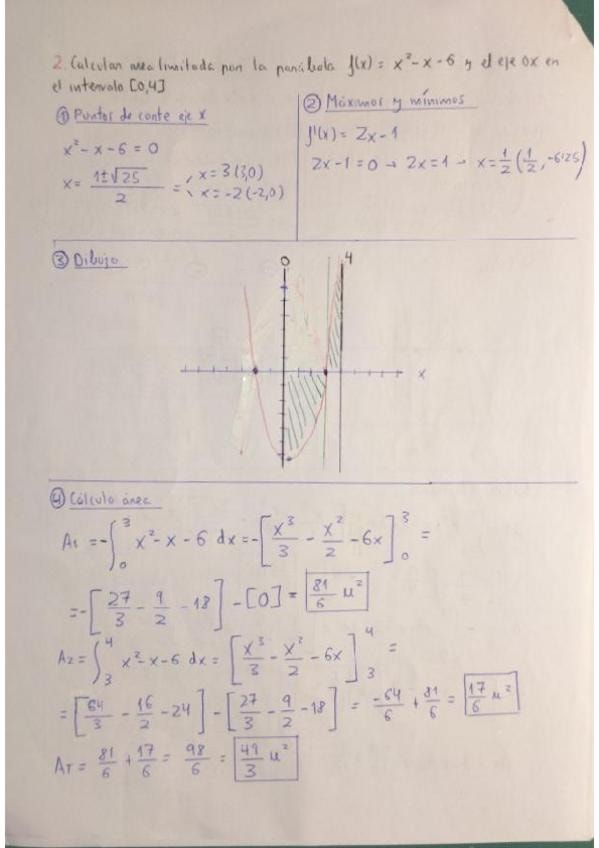 2. Calcular area limitada por la parábola f(x) = x² - x - 6 y el eje OX en
el intervalo [0,4]
① Puntos de corte eje X
x² - x - 6 = 0
x = (1±√25)/2 = x = 3 (3,0)
x = -2 (-2,0)
② Máximos y mínimos
f'(x) = 2x - 1
2x - 1 = 0 → 2x = 1 → x = 1/2 (1/2, -6'25)
③ Dibujo
0 4
x
④ Cálculo área
A₁ = -∫₀³ x² - x - 6 dx = -[x³/3 - x²/2 - 6x]₀³ =
= -[27/3 - 9/2 - 18] - [0] = 81/6 u²
A₂ = ∫₃⁴ x² - x - 6 dx = [x³/3 - x²/2 - 6x]₃⁴ =
= [64/3 - 16/2 - 24] - [27/3 - 9/2 - 18] = -64/6 + 81/6 = 17/6 u²
A_T = 81/6 + 17/6 = 98/6 = 49/3 u²